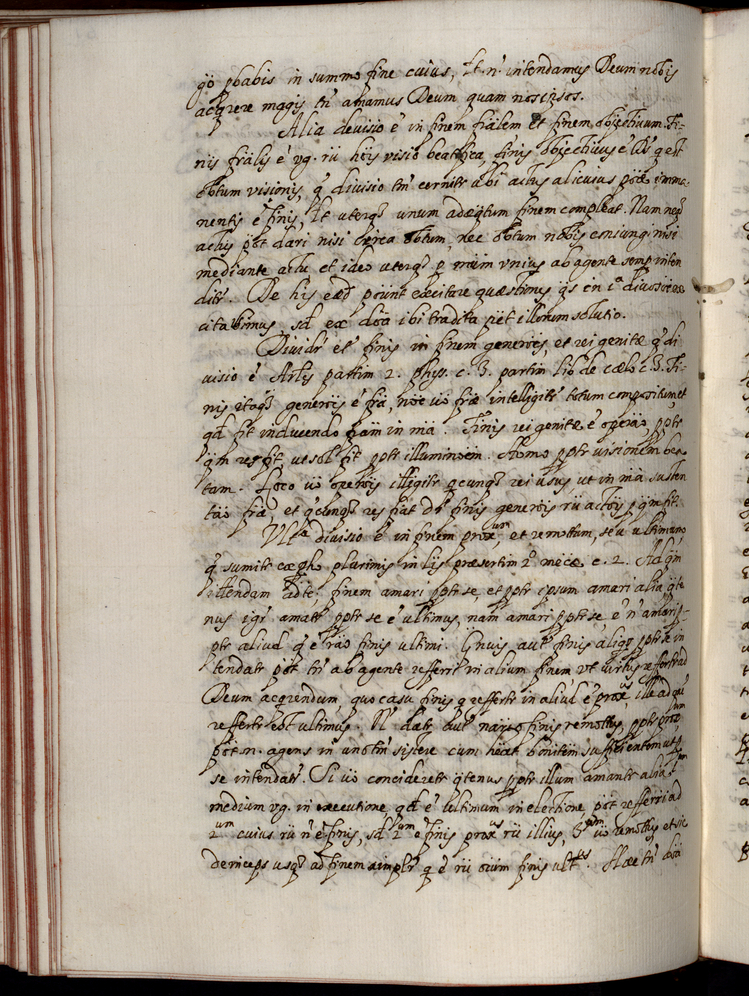 qõ pbabis in summo fine cuius, et n. intendamus Deum nobis
acqrere magis tñ amamus Deum quam nos ipsos.
Alia divisio ẽ in finem frãlem et finem objectivum. Fi-
nis frãlis ẽ vg. rũ hõis visio beatifica, finis objectivus ẽ Ds q est
obtum visionis, q divisio tm cernitr ubi actus alicuius põe imma-
nentis ẽ finis, et uterq unum adæqtum finem compleat. Nam neq
actus põt dari nisi circa obtum, nec obtum nobis consungi nisi
mediante actu, et ideo uterq p mõm unius ab agente semp inten
ditr. De his eãd põunt excitare quæstiones qs in 1a divisione ex
citavimus, sd ex doã ibi tradita pẽt illorum solutio.
Dividr et finis in finem generõis, et rei genitæ q di
visio ẽ Artlis partim 2. phys. c. 3. partim lib de cælo c. 3. Fi-
nis itaq generõis ẽ frã, noie uò frã intelligitr totum compositum, et
qd fit inducendo frãm in mã. Finis rei genitæ ẽ operãõ pptr
qm res fit, ut sol fit pptr illuminõem. Homo pptr visionem bea
tam. Loco uò operõis itelligitr qcunq rei usus, ut in mã susten
tãõ frã, et qcunq res fiat dr finis generõis rũ actõis p qm fit.
Ulta divisio ẽ in finem proxum, et remotum, seu ultimum
q sumitr ex pho plurimis in lis præsertim 2o metæ c. 2. Ad qm
ittendam adte, finem amari pptr se, et pptr ipsum amari alia qte
nus igr amatr pptr se ẽ ultimus, nam amari pptr se ẽ n amari p-
ptr aliud q ẽ rãõ finis ultimi. Quis aut finis aliqs pptr se in
tendatr põt tñ ab agente referri in alium finem ut virtus refertr ad
Deum acqrendum, quo casu finis q refertr in aliud ẽ proxus, ille ad qm
refertr est ultimus. N datr aut narõ finis remotus pptr proxum
põt n. agens in uno tm sistere cum hẽat bonitem sufficientem ut p
se intendatr. Si uò consideretr qtenus pptr illum amantr alia 1um
medium vg. in executione qd ẽ ultimum in electione põt referri ad
2um cuius rũ n ẽ finis, sd 2um ẽ finis proxus rũ illius, 3um uò remotus et sic
deinceps usq ad finem simplr q ẽ rũ oium finis ultus. Hæc tñ doã